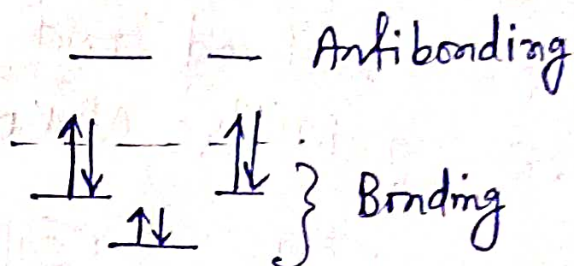 Antibonding
Bonding